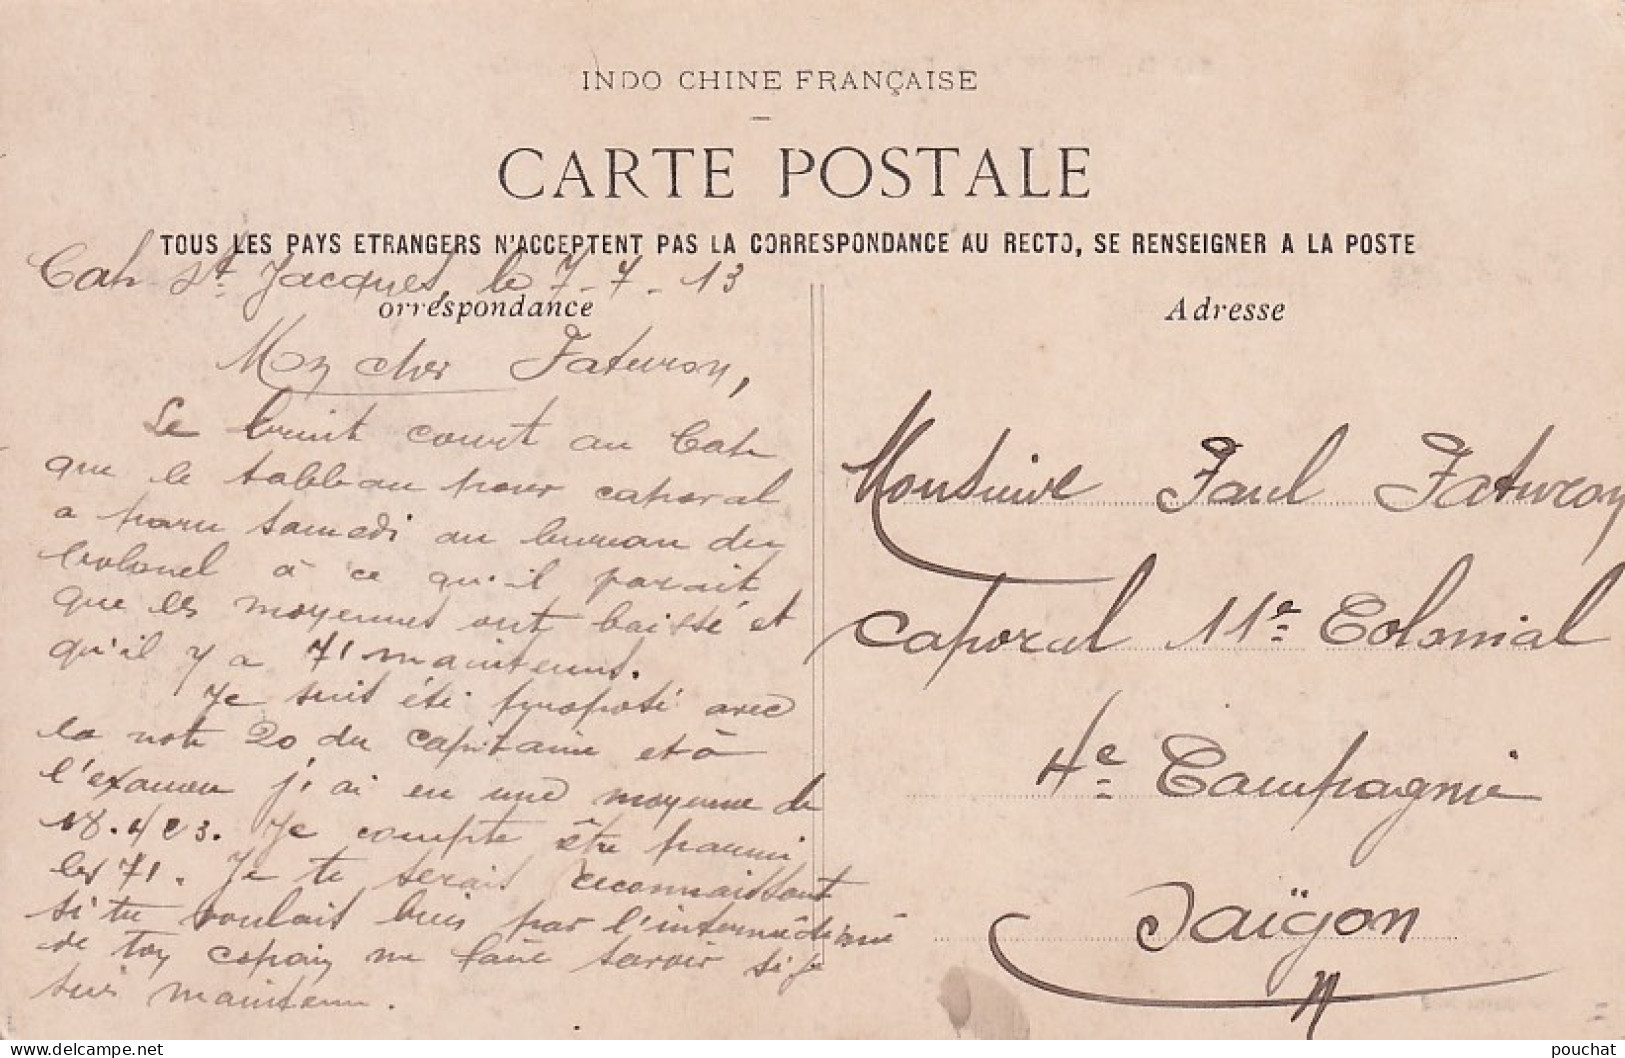 INDO CHINE FRANÇAISE
CARTE POSTALE
TOUS LES PAYS ETRANGERS N'ACCEPTENT PAS LA CORRESPONDANCE AU RECTO, SE RENSEIGNER A LA POSTE
Cap St. Jacques, le 7-7-13
orrespondance
Mon cher Faturon,
Le bruit court au Cap
que le tableau pour caporal
a paru samedi au bureau du
Colonel à ce qu'il parait
que les moyennes ont baissé et
qu'il y a 71 maintenus.
Je suis été proposé avec
la note 20 du Capitaine et à
l'examen j'ai eu une moyenne de
18.1/23. Je compte être parmi
les 71. Je te serais reconnaissant
si tu voulais bien par l'intermédiaire
de ton copain me faire savoir si je
suis maintenu.
Adresse
Monsieur Paul Faturon
Caporal 11e Colonial
4e Compagnie
Saïgon
pouchat